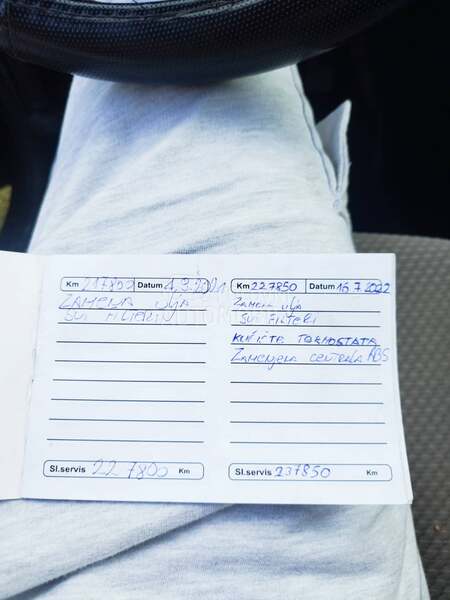 Km 217800 Datum 4.3.2021
ZAMENA ULJA
SVI FILTERI
Sl.servis 227800 Km
Km 227850 Datum 16 7 2022
ZAMENA ULJA
SVI FILTERI
KUĆIŠTA TERMOSTATA
ZAMENJENA CENTRALA ABS
Sl.servis 237850 Km